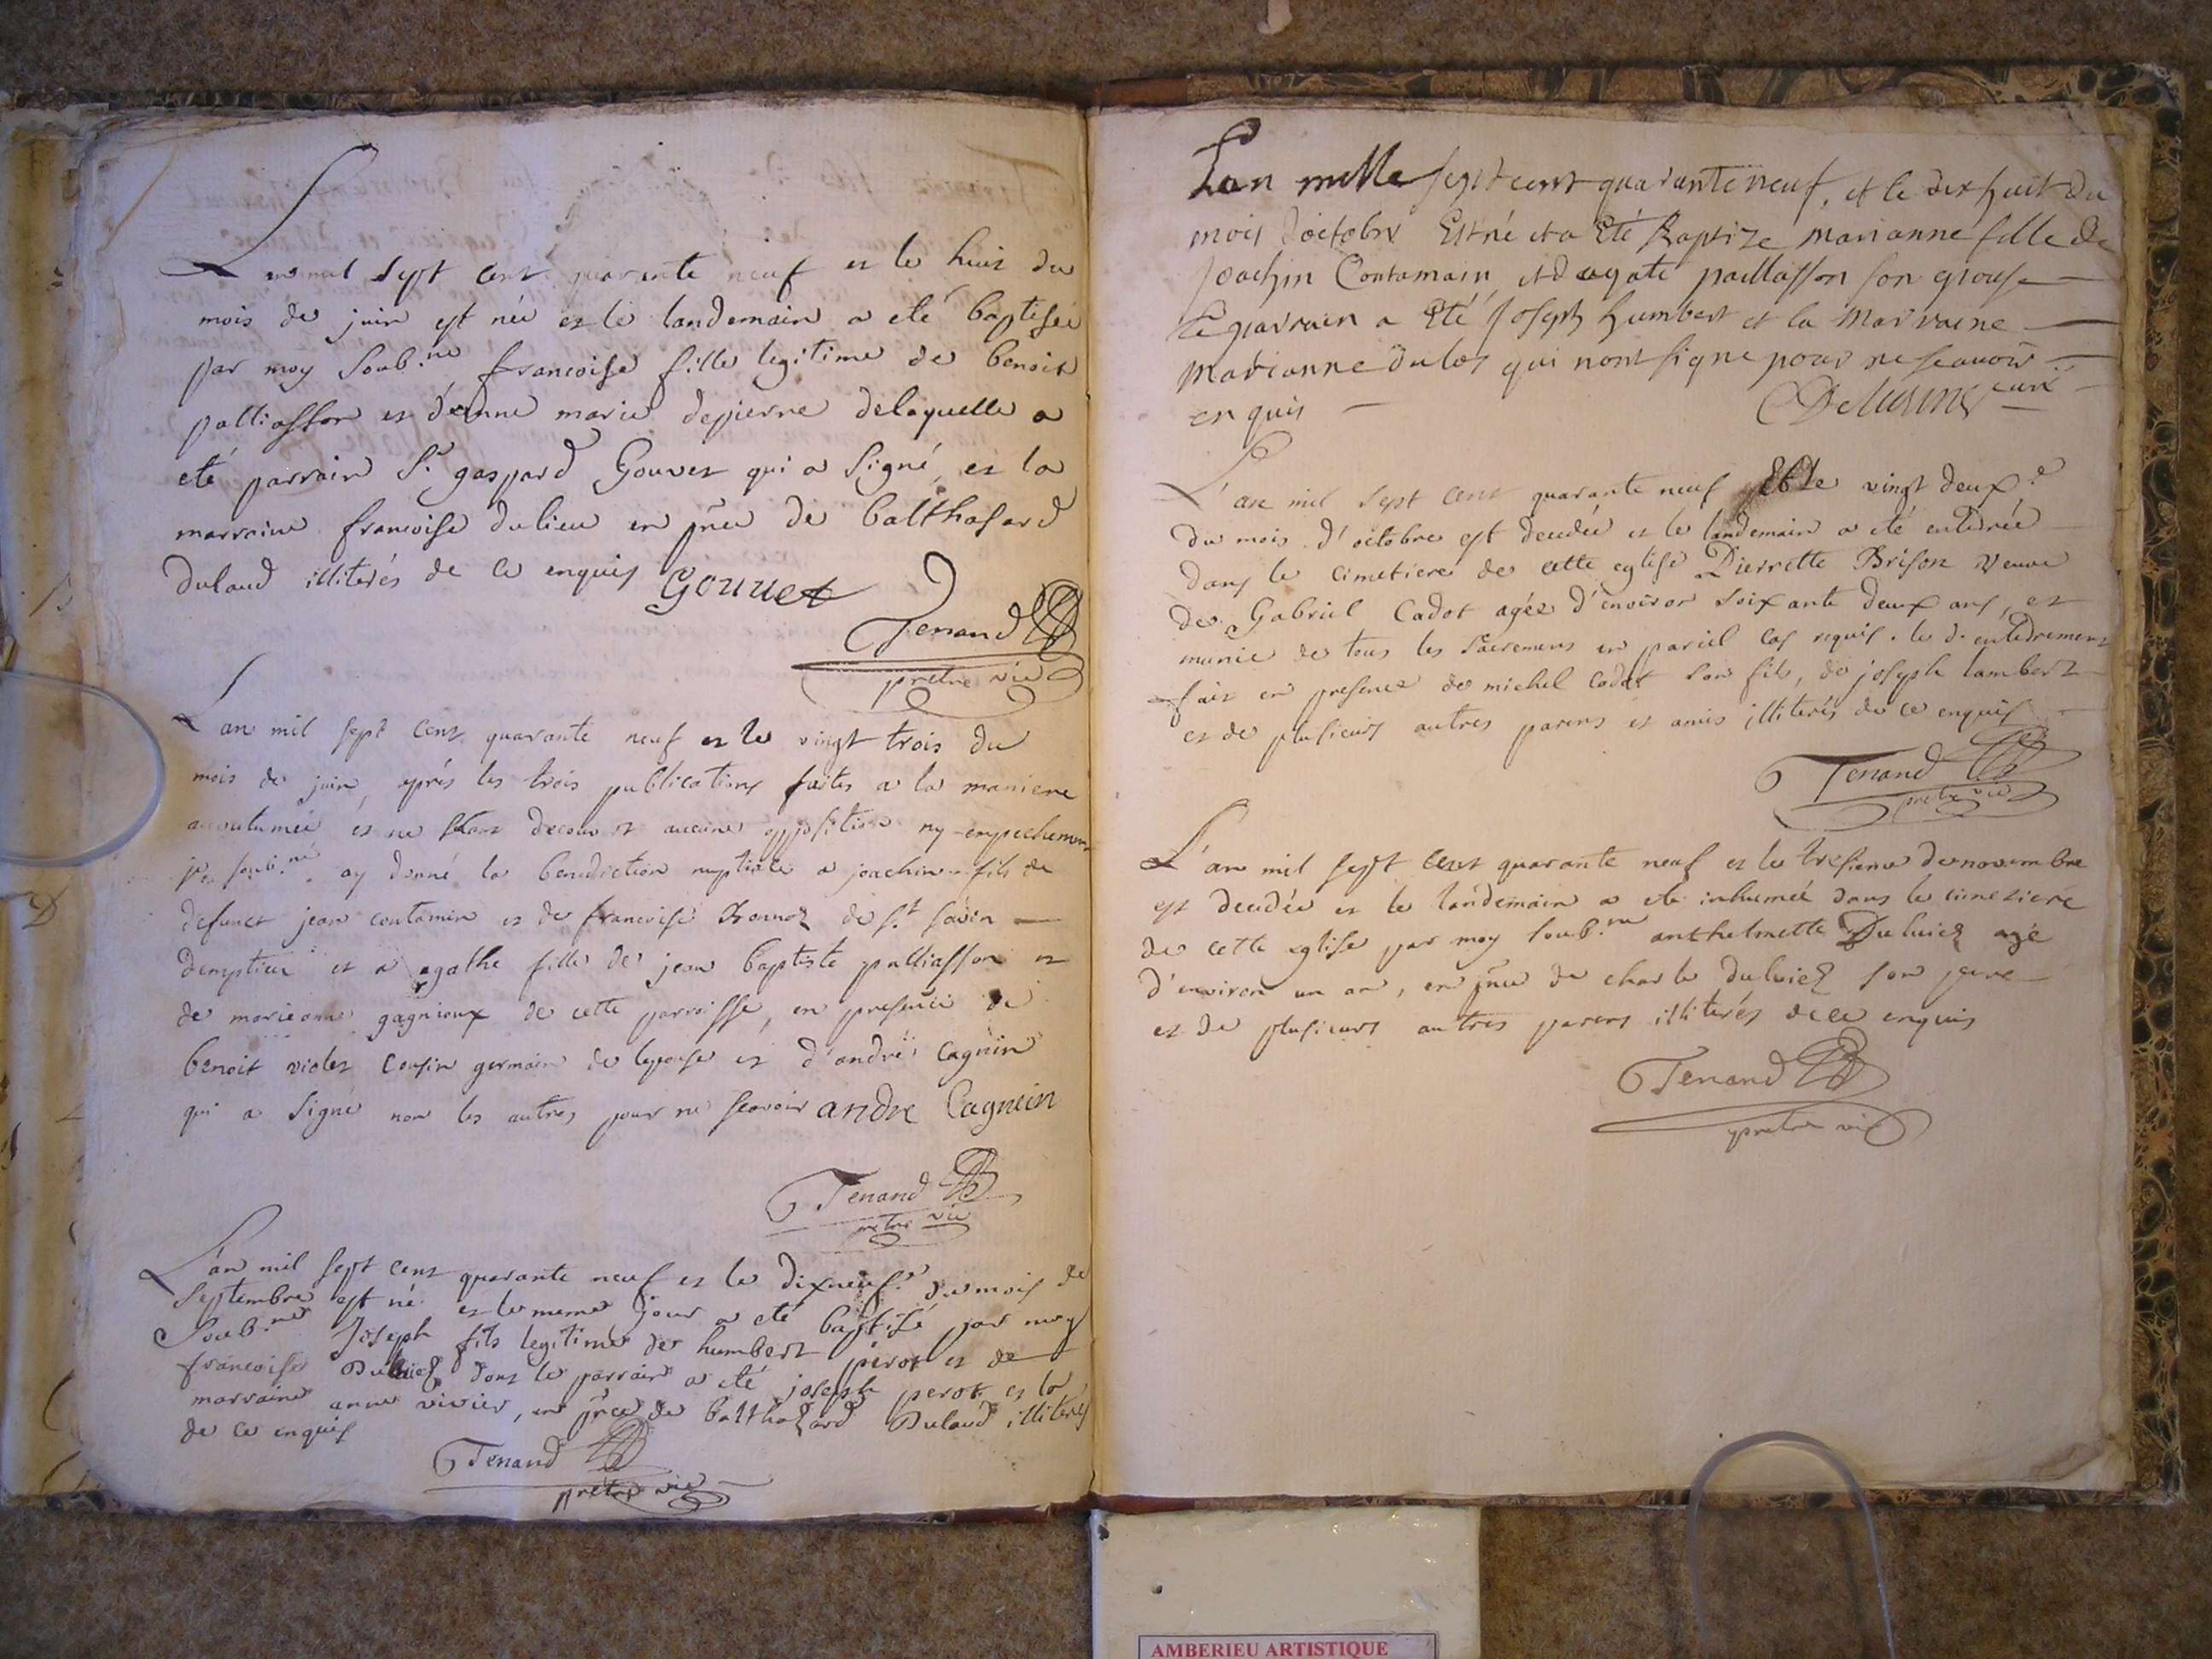 L'an mil sept cent quarante neuf et le huit du
mois de juin est née et le landemain a eté baptisée
par moy soub.né francoise fille legitime de benoit
palliasson et d'anne marie depierre delaquelle a
eté parrain Sr. gaspard Gouvet qui a signé, et la
marraine francoise dulieu en pñce de balthasard
dulaud illiterés de ce enquis Gouuet
Tenand
pretre vic
L'an mil sept cent quarante neuf et le vingt trois du
mois de juin, aprés les trois publications faites a la maniere
accoutumée et ne s'étant decouvert aucune opposition ny empechement
je soub.né ay donné la benediction nuptiale a joachim fils de
defunct jean contamin et de francoise de St. savin
demptieu et a agathe fille de jean baptiste palliasson et
de marieanne gagnioux de cette parroisse, en presence de
benoit violet cousin germain de lepouse et d'andré cagnin
qui a signé non les autres pour ne scavoir andre Cagnein
Tenand
pretre vic
L'an mil sept cent quarante neuf et le dixneuf.e du mois de
septembre est né et le meme jour a eté baptisé par moy
soub.né Joseph fils legitime de humbert perot et de
francoise dont le parrain a eté joseph perot et la
marraine anne vivier, en pñce de balthazard Dulaud illiterés
de ce enquis
Tenand
pretre vic
Lan mille sept cent quarante neuf, et le dix huit du
mois doctobre Est né et a Eté Baptize marianne fille de
joachin Contamain et dagate paillasson son epouse
le parrain a Eté Joseph humbert et la Marraine
marianne dulos qui nont signe pour ne scauoir
enquis curé
L'an mil sept cent quarante neuf Et le vingt deux.e
du mois d'octobre est decedée et le landemain a eté enterrée
dans le cimetiere de cette eglise Pierrette Brison veuve
de Gabriel Cadot agée d'environ soixante deux ans, et
munie de tous les sacremens en pariel cas requis. le d. enterrement
fait en presence de michel cadot son fils, de joseph lambert
et de plusieurs autres parens et amis illiterés de ce enquis
Tenand
pretre vic
L'an mil sept cent quarante neuf et le tresieme de novembre
est decedée et le landemain a ete inhumée dans le cimetiere
de cette eglise par moy soub.né anthelmette agé
d'environ un an, en pñce de charle son pere
et de plusieurs autres parens illiterés de ce enquis
Tenand
pretre vic
AMBERIEU ARTISTIQUE